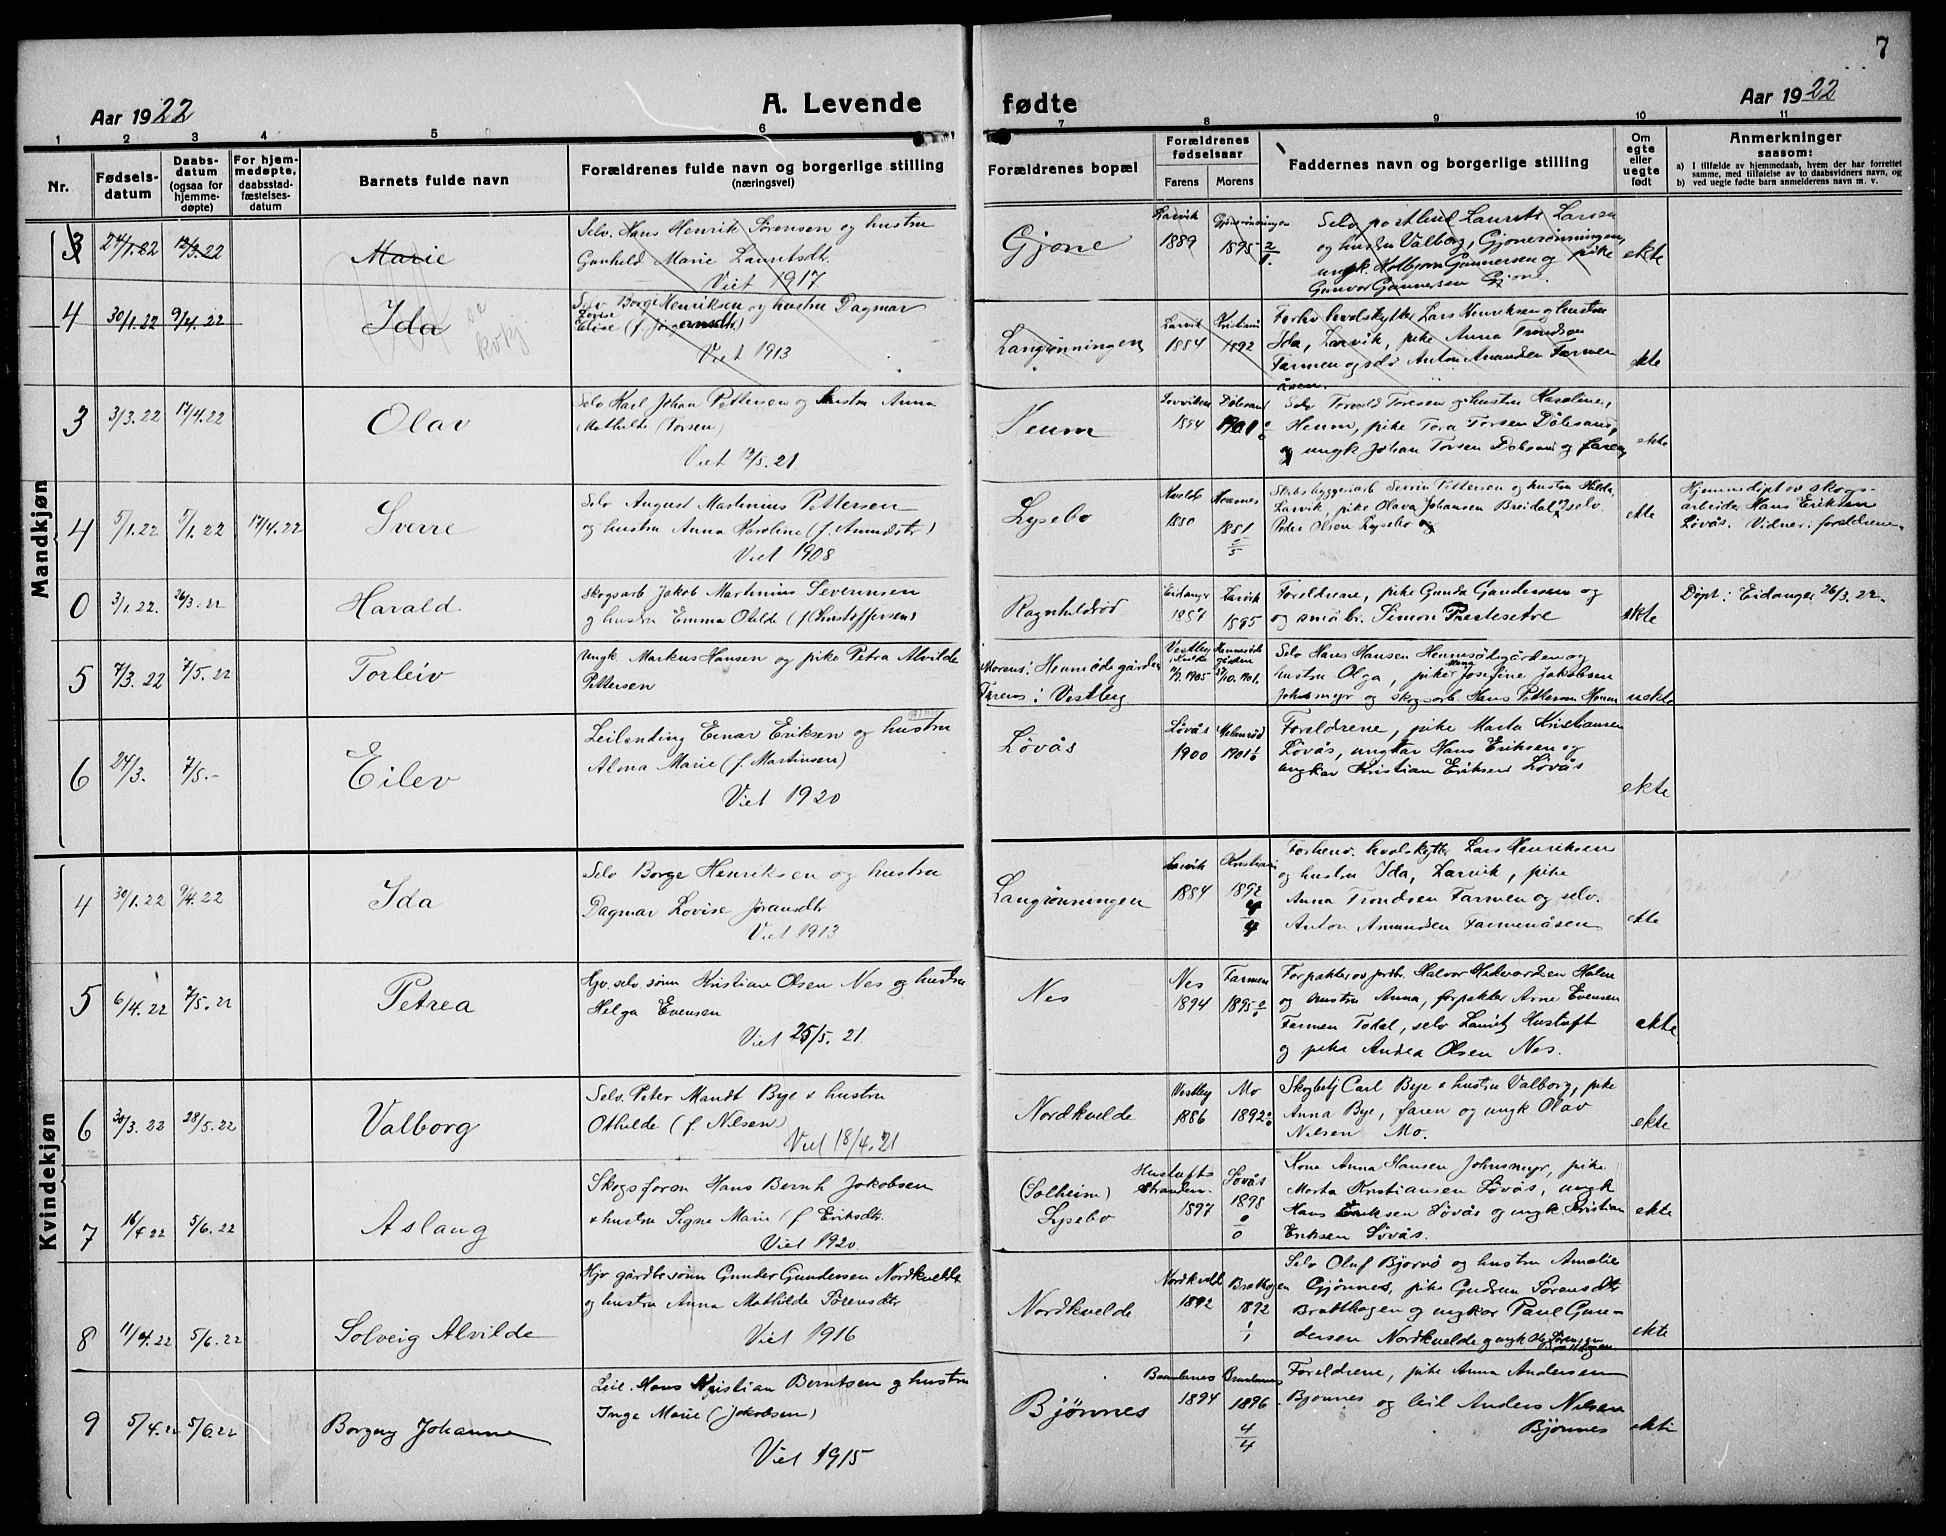 7
Aar 1922
A. Levende
fødte
Aar 1922
1 2 3 4 5 6 7 8 9 10 11
Nr.
Fødsels-
datum
Daabs-
datum
(ogsaa for
hjemme-
døpte)
For hjem-
medøpte,
daabsstad-
fæstelses-
datum
Barnets fulde navn
Forældrenes fulde navn og borgerlige stilling
(næringsvei)
Forældrenes bopæl
Forældrenes
fødselsaar
Farens Morens
Faddernes navn og borgerlige stilling
Om
egte
eller
uegte
født
Anmerkninger
saasom:
a) I tilfælde av hjemmedaab, hvem der har forrettet
samme, med tilføielse av to daabsvidners navn, og
b) ved uegte fødte barn anmelderens navn m. v.
Mandkjøn
3 24/1.22 12/3.22 Marie
Selv. Hans Henrik Sørensen og hustru
Gunhild Marie Lauritsdtr.
Viet 1917
Gjone
Larvik
1889
Gjonerønningen
1895 2/1.
Selv postbud Laurits Larsen
og hustru Valborg, Gjonerønningen,
ungk. Kolbjørn Gunnersen og pike
Gunvor Gunnersen Gjone.
ekte
4 30/1.22 9/4.22 Ida
se
Selv Borge Henriksen og hustru Dagmar
Lovise
Elise (f. Joransdtr.)
Viet 1913
Langrønningen
Larvik
1884
Kristiania
1892
Forhv hvalskytter Lars Henriksen og hustru
Ida, Larvik, pike Anna Trondsen
Farmen og selv Anton Amundsen Farmen
åsen.
ekte
3 3/3.22 17/4.22 Olav
Selv Karl Johan Pettersen og hustru Anna
Mathilde (Torsen)
Viet 12/5.21
Heum
1894
Dølesand
1901 0/0
Selv Torvald Toresen og hustru Karoline,
Heum, pike Tora Torsen Dølesand,
og ungk Johan Torsen Dølesand og faren
ekte
4 5/1.22 7/1.22 17/4.22 Sverre
Selv August Martinius Pettersen
og hustru Anna Karoline (f. Amundsdtr)
Viet 1908
Lysebo
1880
1881
5/5
Skibsbyggeriarb Severin Pettersen og hustru Hilda,
Larvik, pike Olava Johansen Breidal og selv
Peter Olsen Lysebo og
ekte
Hjemmedøpt av skogs-
arbeider Hans Eriksen
Løvås. Vidner: foreldrene.
0 3/1.22. 26/3.22 Harald
Skogsarb Jakob Martinius Severinsen
og hustru Emma Otilde (f Christoffersen)
Ragnhildrød
Eidanger
1887
Larvik
1895
Foreldrene, pike Gunda Gundersen og
og småbr. Simon Prestesetre
ekte
Døpt i Eidanger 26/3.22.
5 7/3.22 7/5.22 Torleiv
Ungk. Markus Hansen og pike Petra Alvilde
Pettersen
Morens: Heumsødegården
Farens: Vestby
Selv Hans Hansen Heumsødegården og
hustru Olga, pike Josefine Jakobsen
Johnsmyr og skogsarb. Hans Pettersen Heum
uekte
6 24/3. 7/5.- Eilev
Leilending Einar Eriksen og hustru
Alma Marie (f. Martinsen)
Viet 1920
Løvås
Løvås
1900
1901 1/0
Foreldrene, pike Marta Kristiansen
Løvås, ungkar Hans Eriksen og
ungkar Kristian Eriksen Løvås
ekte
Kvindekjøn
4 30/1.22 9/4.22 Ida
Selv Borge Henriksen og hustru
Dagmar Lovise Joransdtr
Viet 1913
Langrønningen
Larvik
1884
Kristiania
1892
4/4
Forhenv. hvalskytter Lars Henriksen
og hustru Ida, Larvik, pike
Anna Trondsen Farmen og selv.
Anton Amundsen Farmenåsen
ekte
5 6/4.22 7/5.22 Petrea
Hjv. selv sønn Kristian Olsen Nes og hustru
Helga Evensen
Viet 25/5.21.
Nes
Nes
1894
Farmen
1895 0/0
Forpakter av jordbr. Halvor Hedvardsen Holm
og hustru Anna, forpakter Arne Evensen
Farmen Todal, selv Laurits Hustoft
og pike Andrea Olsen Nes.
ekte
6 30/3.22 28/5.22 Valborg
Selv. Peter Mandt Bye & hustru
Othilde (f. Nilsen)
Viet 18/4.21
Nordkvelde
Vestby
1886
Mo
1892 0/0
Skogbetj Carl Bye & hustru Valborg, pike
Anna Bye, faren og ungk Olav
Nilsen Mo.
ekte
7 16/4 22 5/6.22 Aslaug
Skogsforv Hans Bernh Jakobsen
& hustru Signe Marie (f Eriksdtr.
Viet 1920.
(Solheim)
Lysebo
Hustofts
stranden.
1897
Løvås
1898
0/0
Kone Anna Hansen Johnsmyr, pike
Marta Kristiansen Løvås, ungk
Hans Eriksen Løvås og ungk. Kristian
Eriksen Løvås.
ekte
8 11/4.22 5/6.22 Solveig Alvilde
Hjv gårdbr.sønn Gunder Gundersen Nordkvelde
og hustru Anna Mathilde Sørensdtr
Viet 1916
Nordkvelde
Nordkvelde
1892
Bratthagen
1892
1/1
Selv Oluf Bjørnø og hustru Amalie
Gjønnes, pike Gudrun Sørensdtr
Bratthagen og ungkar Paul Gun-
dersen Nordkvelde og ungk Ole Sørensen
Bratthagen
ekte
9 5/4.22 5/6.22 Borgny Johanne
Leil. Hans Kristian Berntsen og hustru
Inga Marie (Jakobsen)
Viet 1915
Bjønnes
1894
1896
4/4
Foreldrene, pike Anna Andersen
Bjønnes og leil Anders Nilsen
Bjønnes
ekte